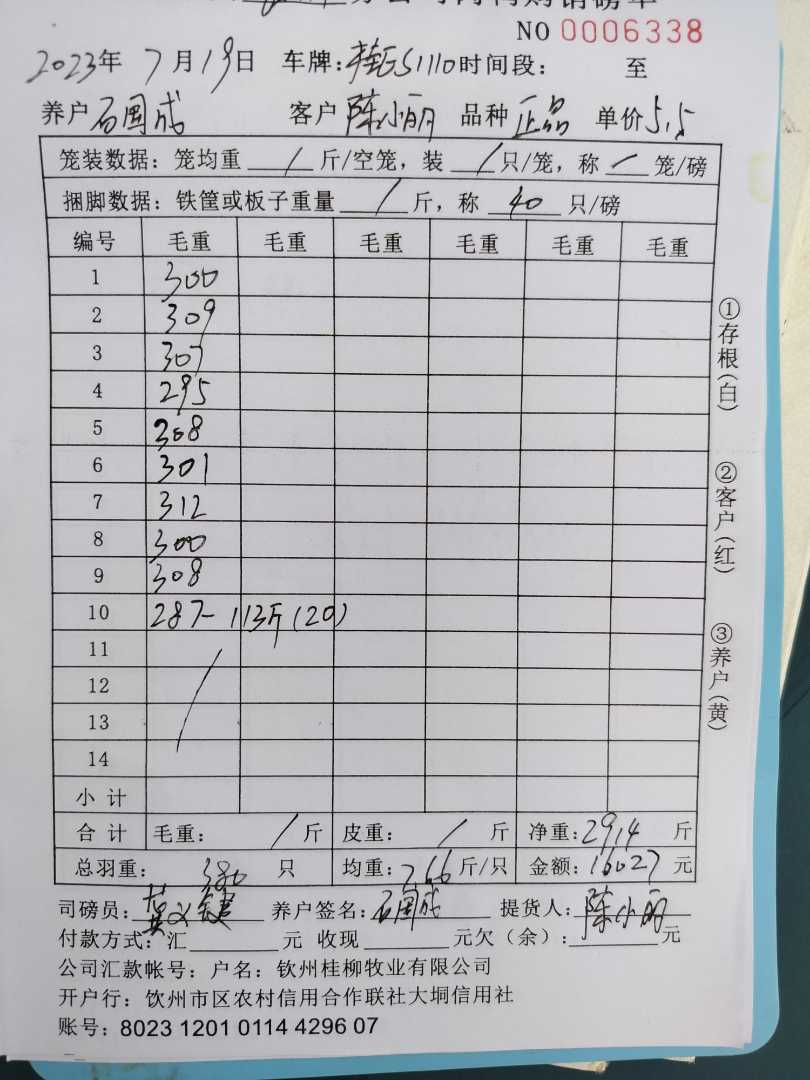 分公司肉鸭购销磅单
NO 0006338
2023年 7月19日 车牌: 桂E51110 时间段: 至
养户 石周成 客户 陈小丽 品种 正品 单价 5.5
笼装数据: 笼均重 / 斤/空笼, 装 / 只/笼, 称 / 笼/磅
捆脚数据: 铁筐或板子重量 / 斤, 称 40 只/磅
编号 毛重 毛重 毛重 毛重 毛重 毛重
1 300
2 309
3 307
4 295
5 308
6 301
7 312
8 300
9 308
10 287- 113斤(20)
11
12
13
14
小 计
合 计 毛重: / 斤 皮重: / 斤 净重: 2914 斤
总羽重: 380 只 均重: 7.66 斤/只 金额: 16027 元
司磅员: 黄义键 养户签名: 石周成 提货人: 陈小丽
付款方式: 汇 元 收现 元欠(余): 元
公司汇款帐号: 户名: 钦州桂柳牧业有限公司
开户行: 钦州市区农村信用合作联社大垌信用社
账号: 8023 1201 0114 4296 07
①存根(白)
②客户(红)
③养户(黄)